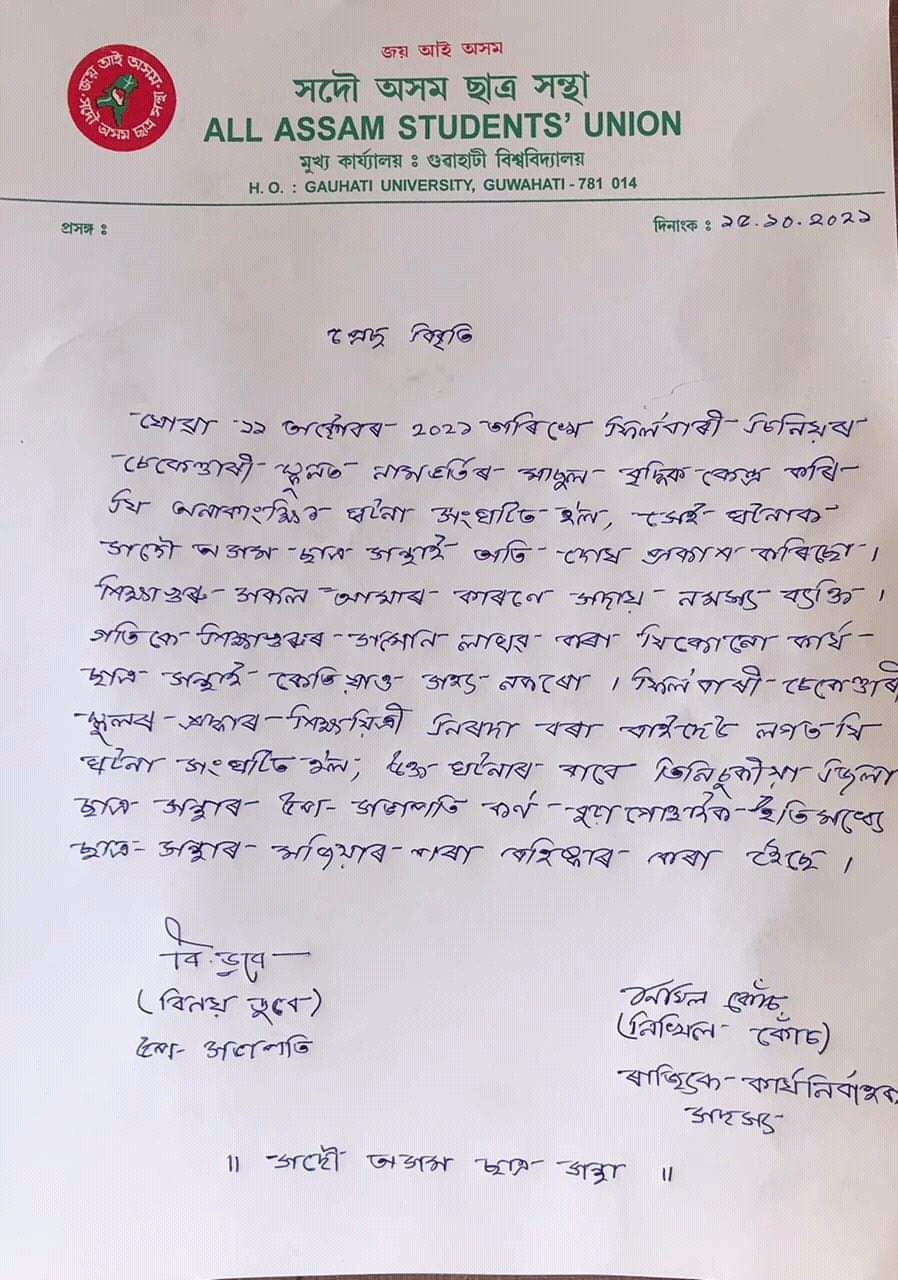 জয় আই অসম
সদৌ অসম ছাত্ৰ সন্থা
জয় আই অসম
সদৌ অসম ছাত্ৰ সন্থা
ALL ASSAM STUDENTS' UNION
মুখ্য কাৰ্য্যালয় : গুৱাহাটী বিশ্ববিদ্যালয়
H. O. : GAUHATI UNIVERSITY, GUWAHATI - 781 014
প্ৰসঙ্গ :
দিনাংক : ১৫.১০.২০২১
প্ৰেছ বিবৃতি
যোৱা ১১ অক্টোবৰ ২০২১ তাৰিখে ফিলবাৰী চিনিয়ৰ
চেকেণ্ডাৰী স্কুলত নামভৰ্তিৰ মাচুল বৃদ্ধিক কেন্দ্ৰ কৰি
যি অনাকাংক্ষিত ঘটনা সংঘটিত হ'ল, সেই ঘটনাক
সদৌ অসম ছাত্ৰ সন্থাই অতি প্ৰকাশ কৰিছো ।
শিক্ষাগুৰু সকল আমাৰ কাৰণে সদায় নমস্য ব্যক্তি ।
গতিকে শিক্ষাগুৰুৰ সন্মান লাঘৱ কৰা যিকোনো কাৰ্য
ছাত্ৰ সন্থাই কেতিয়াও সহ্য নকৰো । ফিলবাৰী চেকেণ্ডাৰী
স্কুলৰ শ্ৰদ্ধাৰ শিক্ষয়িত্ৰী নিৰদা বৰা বাইদেউ লগত যি
ঘটনা সংঘটিত হ'ল, উক্ত ঘটনাৰ বাবে তিনিচুকীয়া জিলা
ছাত্ৰ সন্থাৰ উপ সভাপতি কৰ্ণ ইতিমধ্যে
ছাত্ৰ সন্থাৰ মজিয়াৰ পৰা বহিষ্কাৰ কৰা হৈছে ।
বি. ডুবে
(বিনয় ডুবে)
উপ সভাপতি
নিখিল কোঁচ
(নিখিল কোঁচ)
ৰাজ্যিক কাৰ্যনিৰ্বাহক
সদস্য
॥ সদৌ অসম ছাত্ৰ সন্থা ॥